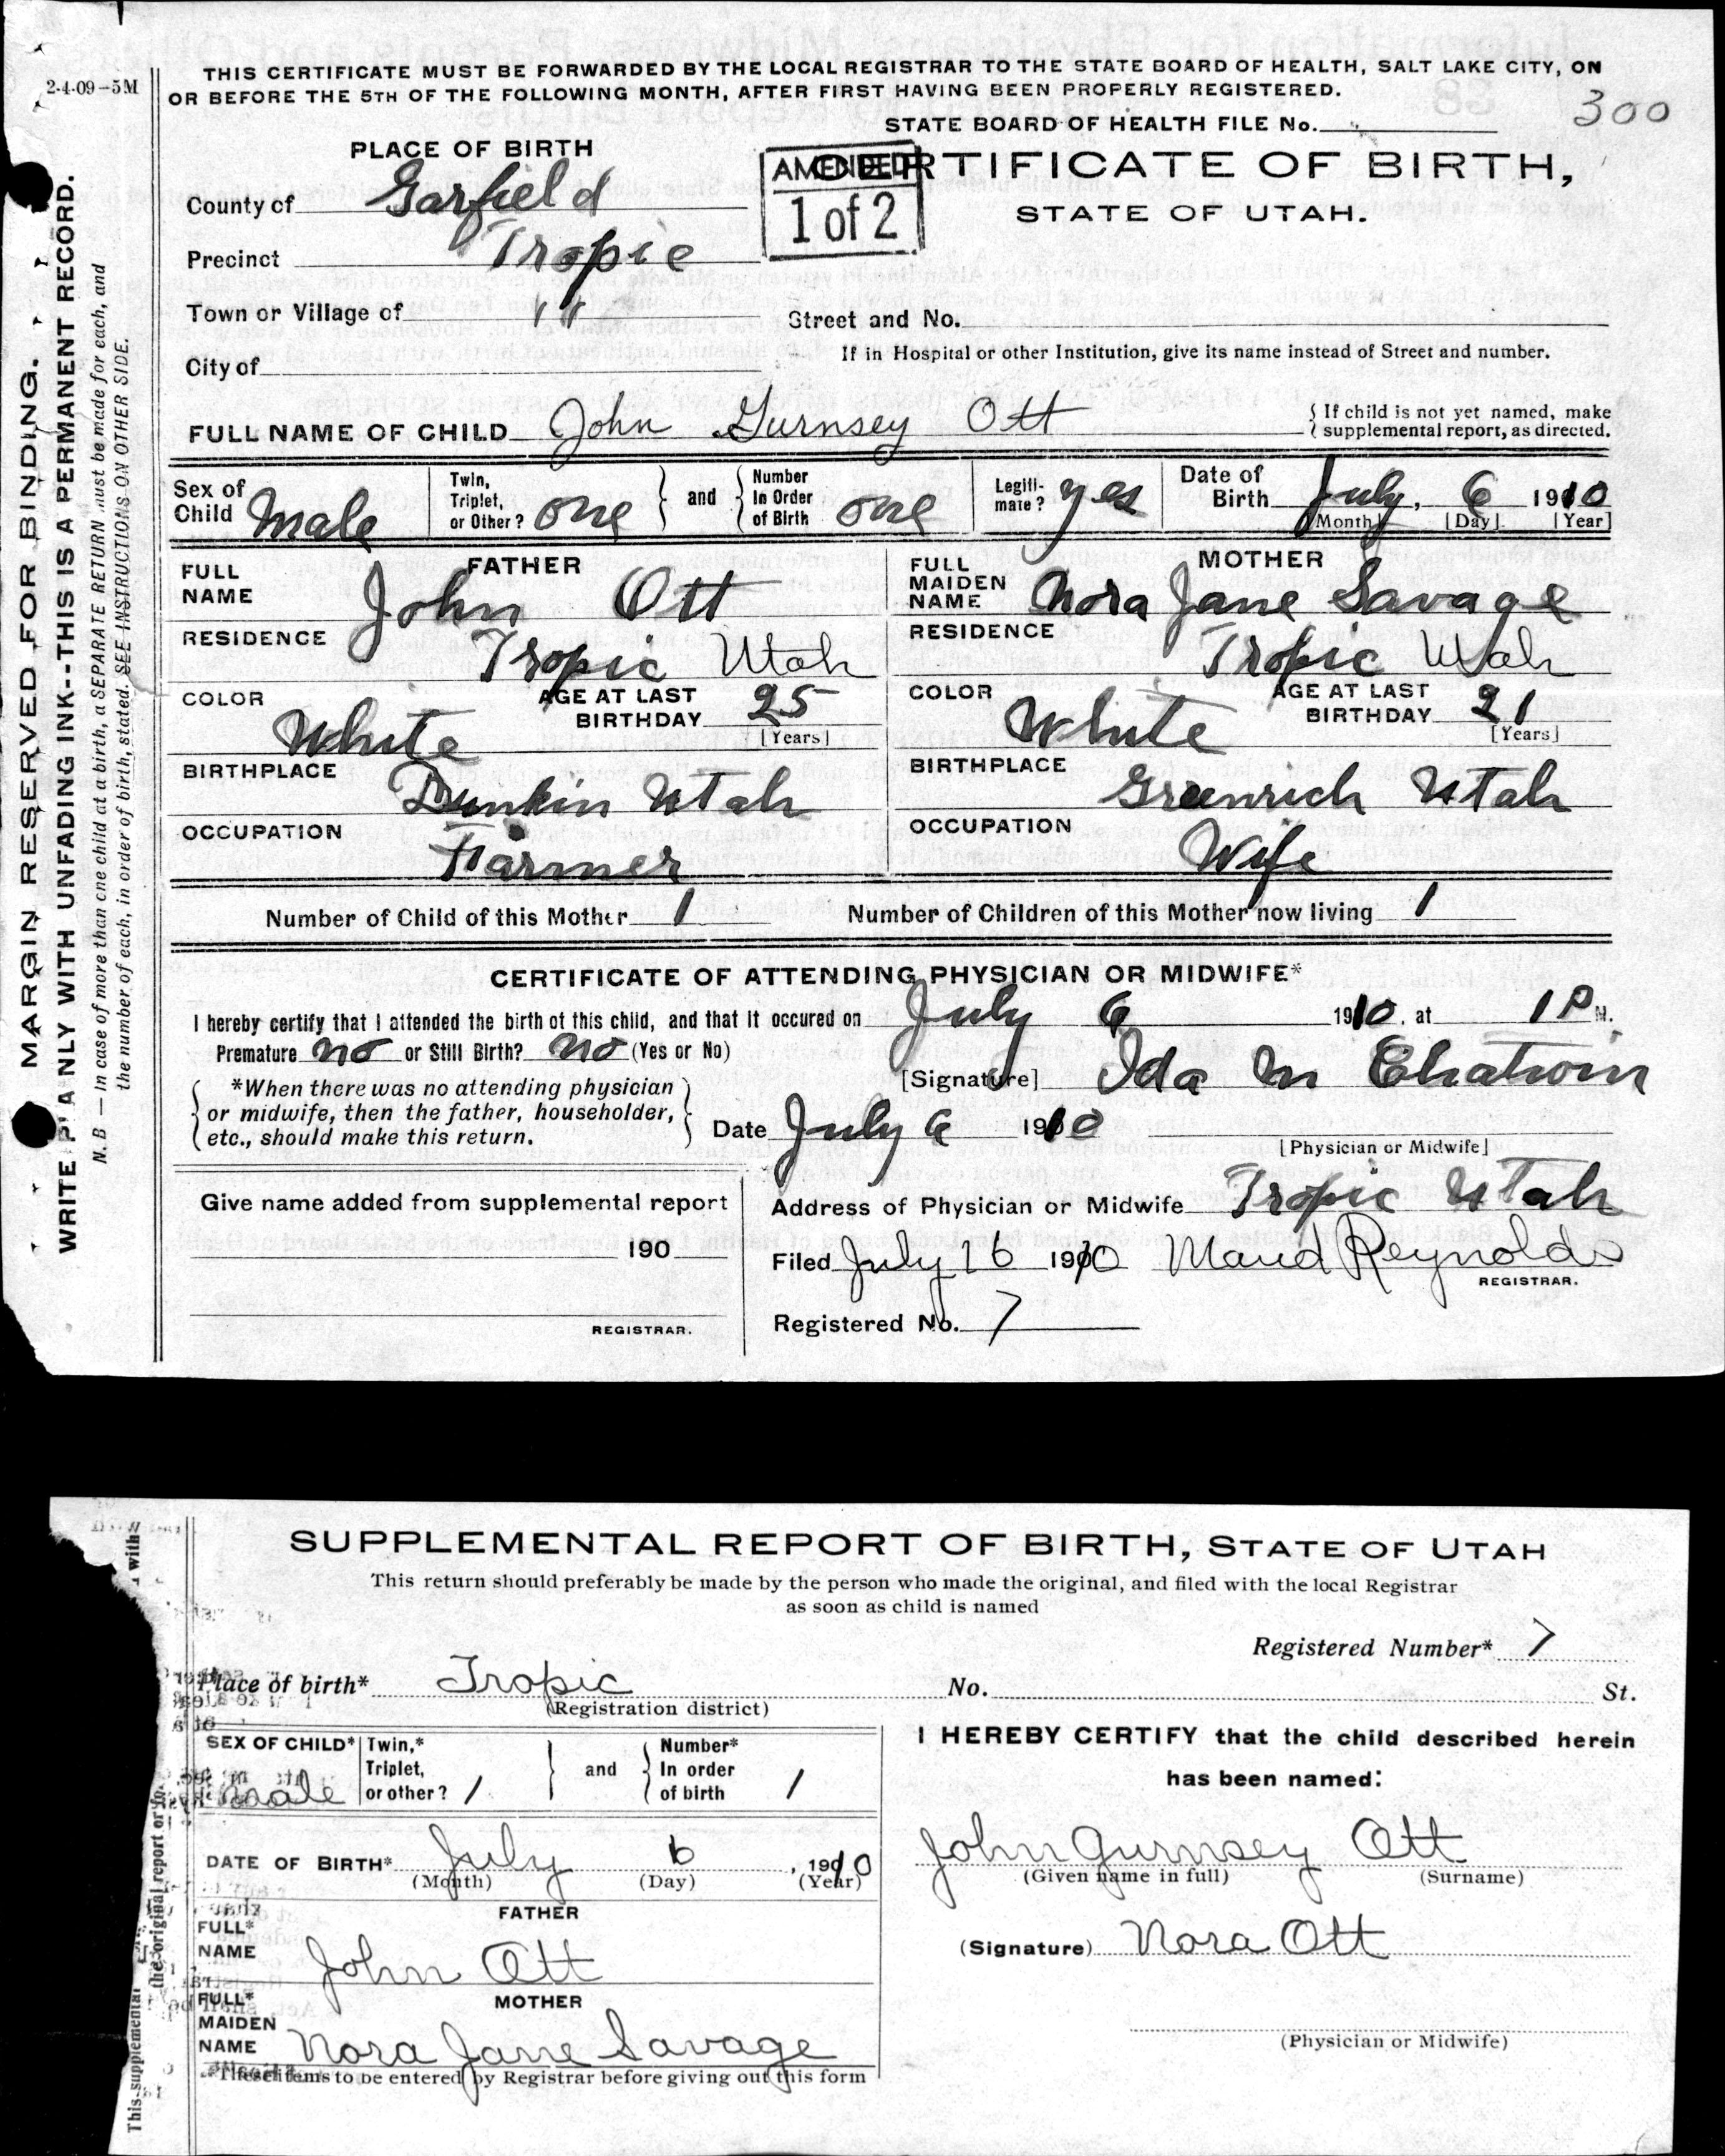 2-4-09-5M
THIS CERTIFICATE MUST BE FORWARDED BY THE LOCAL REGISTRAR TO THE STATE BOARD OF HEALTH, SALT LAKE CITY, ON
OR BEFORE THE 5TH OF THE FOLLOWING MONTH, AFTER FIRST HAVING BEEN PROPERLY REGISTERED.
300
STATE BOARD OF HEALTH FILE No.
PLACE OF BIRTH
AMENDED
1 of 2
CERTIFICATE OF BIRTH,
STATE OF UTAH.
County of Garfield
Precinct Tropic
Town or Village of " Street and No.
City of If in Hospital or other Institution, give its name instead of Street and number.
FULL NAME OF CHILD John Gurnsey Ott { If child is not yet named, make supplemental report, as directed.
Sex of Child Male Twin, Triplet, or Other? one } and { Number In Order of Birth one Legiti-mate? yes Date of Birth July, 6 1910
[Month] [Day] [Year]
FATHER
FULL NAME John Ott
MOTHER
FULL MAIDEN NAME Nora Jane Savage
RESIDENCE Tropic Utah
RESIDENCE Tropic Utah
COLOR White AGE AT LAST BIRTHDAY 25 [Years]
COLOR White AGE AT LAST BIRTHDAY 21 [Years]
BIRTHPLACE Dunkin Utah
BIRTHPLACE Greenrich Utah
OCCUPATION Farmer
OCCUPATION Wife
Number of Child of this Mother 1 Number of Children of this Mother now living 1
CERTIFICATE OF ATTENDING PHYSICIAN OR MIDWIFE*
I hereby certify that I attended the birth of this child, and that it occured on July 6 1910. at 1 P M.
Premature no or Still Birth? no (Yes or No)
[Signature] Ida M Chatwin
{ *When there was no attending physician
or midwife, then the father, householder,
etc., should make this return. }
Date July 6 1910
[Physician or Midwife]
Give name added from supplemental report
190
REGISTRAR.
Address of Physician or Midwife Tropic Utah
Filed July 16 1910 Maud Reynolds
REGISTRAR.
Registered No. 7
MARGIN RESERVED FOR BINDING.
WRITE PLANLY WITH UNFADING INK--THIS IS A PERMANENT RECORD.
N. B — In case of more than one child at a birth, a SEPARATE RETURN must be made for each, and
the number of each, in order of birth, stated. SEE INSTRUCTIONS ON OTHER SIDE.
SUPPLEMENTAL REPORT OF BIRTH, STATE OF UTAH
This return should preferably be made by the person who made the original, and filed with the local Registrar
as soon as child is named
Registered Number* 7
Place of birth* Tropic No. St.
(Registration district)
SEX OF CHILD* Male Twin,* Triplet, or other? 1 } and { Number* In order of birth 1
I HEREBY CERTIFY that the child described herein
has been named:
DATE OF BIRTH* July 6, 1910
(Month) (Day) (Year)
John Gurnsey Ott
(Given name in full) (Surname)
FATHER
FULL* NAME John Ott
(Signature) Nora Ott
MOTHER
FULL* MAIDEN NAME Nora Jane Savage
(Physician or Midwife)
*These items to be entered by Registrar before giving out this form
This supplemental
the original report or
with